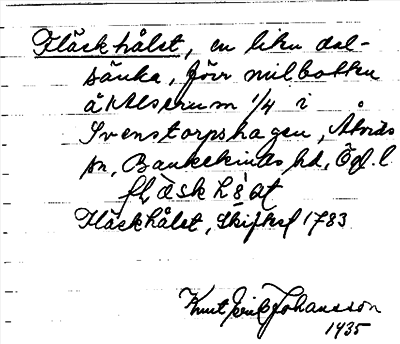 Fläskhålet, en liten dal-
sänka, förr mulbetten
å Alserum 1/4 i
Svenstorpshagen, Åtvids
sn, Bankekinds hd, Ögl. l
flàskhǻat
Fläskhålet, Skifteskl 1783
Knut Erik Johansson
1935